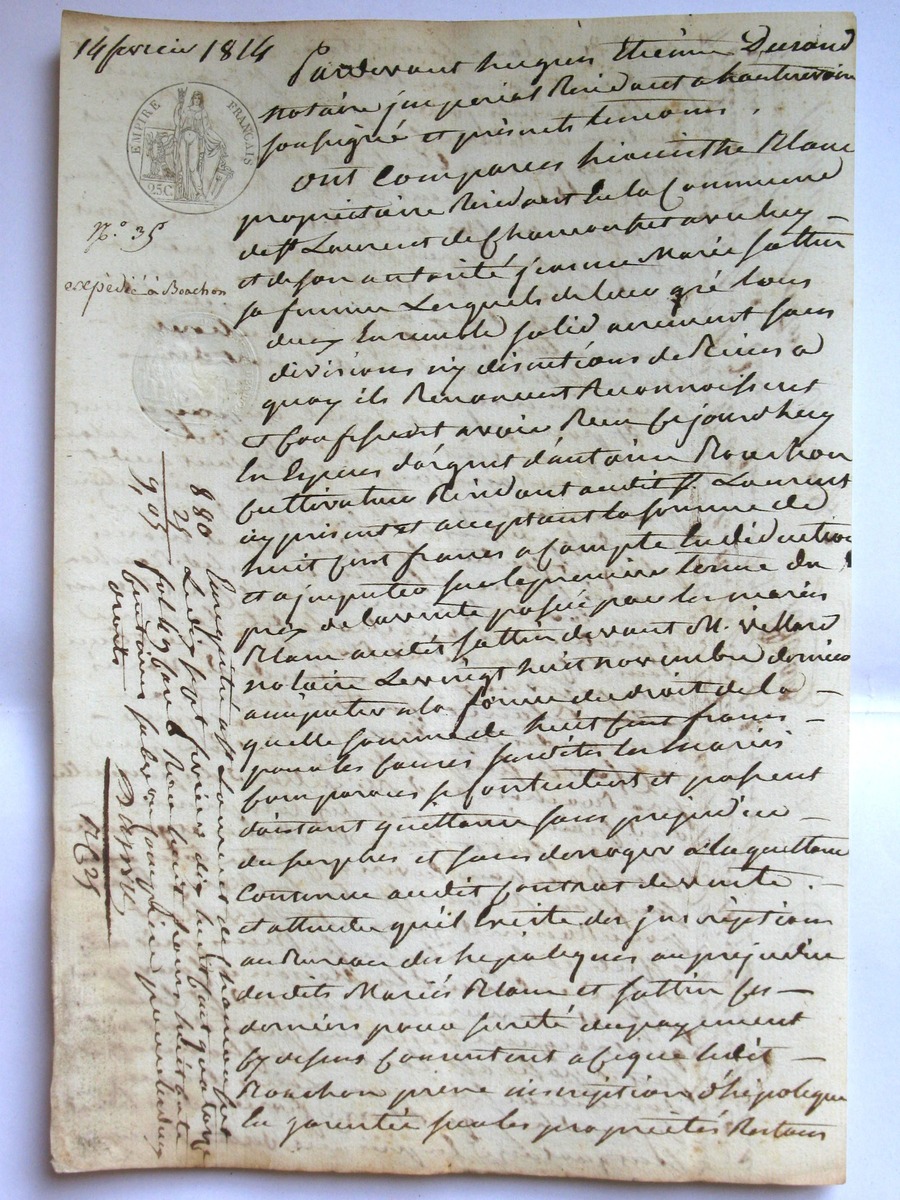 14 fevrier 1814
EMPIRE FRANÇAIS
25C
N.o 35
expédié à Boachon
Pardevant hugues Etienne Durand
notaire imperial Résidant a hauterivoire
soussigné et présents temoins.
ont Comparus hiacinthe Blanc
propriétaire Résidant en la Commune
de st Laurent de Chamousset avec luy
et de son autorité jeanne Marie sattin
sa femme Lesquels de leur gré tous
deux Ensemble solidairement sans
divisions ny discutions de Biens a
quoy ils Renoncent Reconnoissent
et Confessent avoir Reçu Cejourdhuy
En Especes d'argent d'antoine Boachon
Cultivateur Résidant audit st Laurent
icy présent et acceptant la somme de
huit Cent francs a Compte En déduction
et a imputer sur le premier terme du
prix de la vente passée par les mariés
Blanc audit sattin devant M. villard
notaire Le vingt huit novembre dernier
a imputer a la forme du droit de la
quelle somme de huit Cent francs
pour les Causes susdites les mariés
Comparus se Contentent et passent
d'aistant quittance sans prejudice
du surplus et sans deroger a la quittance
Contenue audit Contrat de vente.
et attendu qu'il Existe des inscriptions
au Bureau des hipoteques au prejudice
desdits Mariés Blanc et sattin Ces
derniers pour sureté du payement
Cy dessus Consentent a Ce que ledit
Boachon prene inscription d'hipoteque
En garantie sur les propriétés
Enregistré a st Laurent de Chamousset
Le dix sept fevrier dix huit Cent quatorze
fol. 149
huit francs
centimes
droits
880
25
9,05